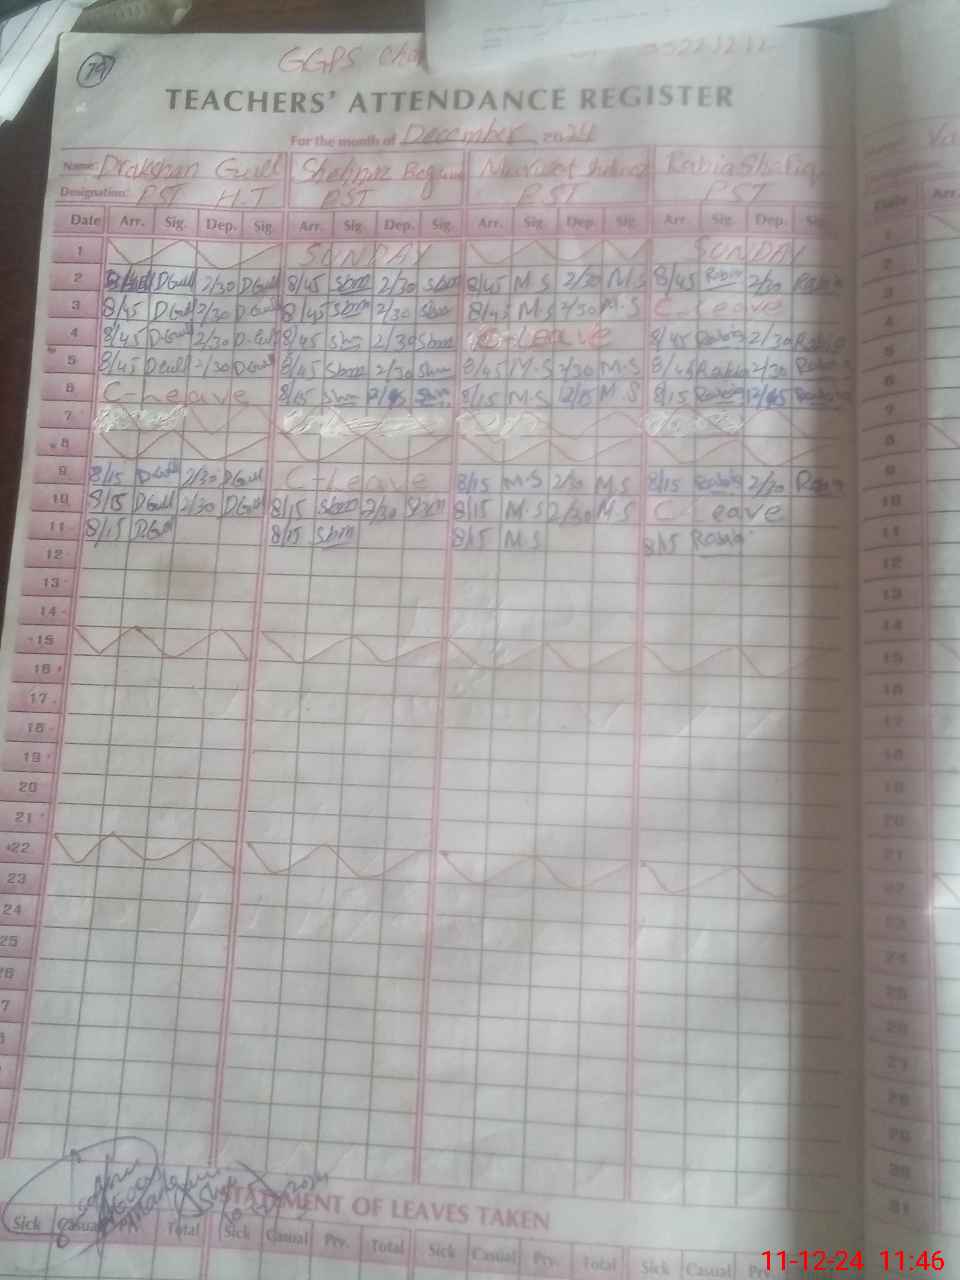 79
GGPS
TEACHERS' ATTENDANCE REGISTER
For the month of December 2024
Name: Drakshan Gull Shehnaz Begum Rabia Shafiq
Designation: PST H.T PST PST PST
Date Arr. Sig. Dep. Sig. Arr. Sig. Dep. Sig. Arr. Sig. Dep. Sig. Arr. Sig. Dep. Sig.
1 SUNDAY SUNDAY
2 8/45 D Gull 2/30 D Gull 8/45 Sbm 2/30 Sbm 8/45 M.S 2/30 M.S 8/45 Rabia 2/30 Rabia
3 8/45 D Gull 2/30 D Gull 8/45 Sbm 2/30 Sbm 8/45 M.S 2/30 M.S C-Leave
4 8/45 D Gull 2/30 D.Gull 8/45 Sbm 2/30 Sbm C-Leave 8/45 Rabia 2/30 Rabia
5 8/45 D Gull 2/30 D Gull 8/45 Sbm 2/30 Sbm 8/45 M.S 2/30 M.S 8/45 Rabia 2/30 Rabia
6 C-Leave 8/15 Sbm Sbm 8/15 M.S 12/15 M.S 8/15 Rabia Rabia
7
8
9 8/15 D Gull 2/30 D Gull C-Leave 8/15 M.S 2/30 M.S 8/15 Rabia 2/30 Rabia
10 8/15 D Gull 2/30 D Gull 8/15 Sbm 2/30 Sbm 8/15 M.S 2/30 M.S C-Leave
11 8/15 D Gull 8/15 Sbm 8/15 M.S 8/15 Rabia
12
13
14
15
16
17
18
19
20
21
22
23
24
25
STATEMENT OF LEAVES TAKEN
Sick Casual Total Sick Casual Prv. Total Sick Casual Prv. Total Sick Casual Prv.
11-12-24 11:46